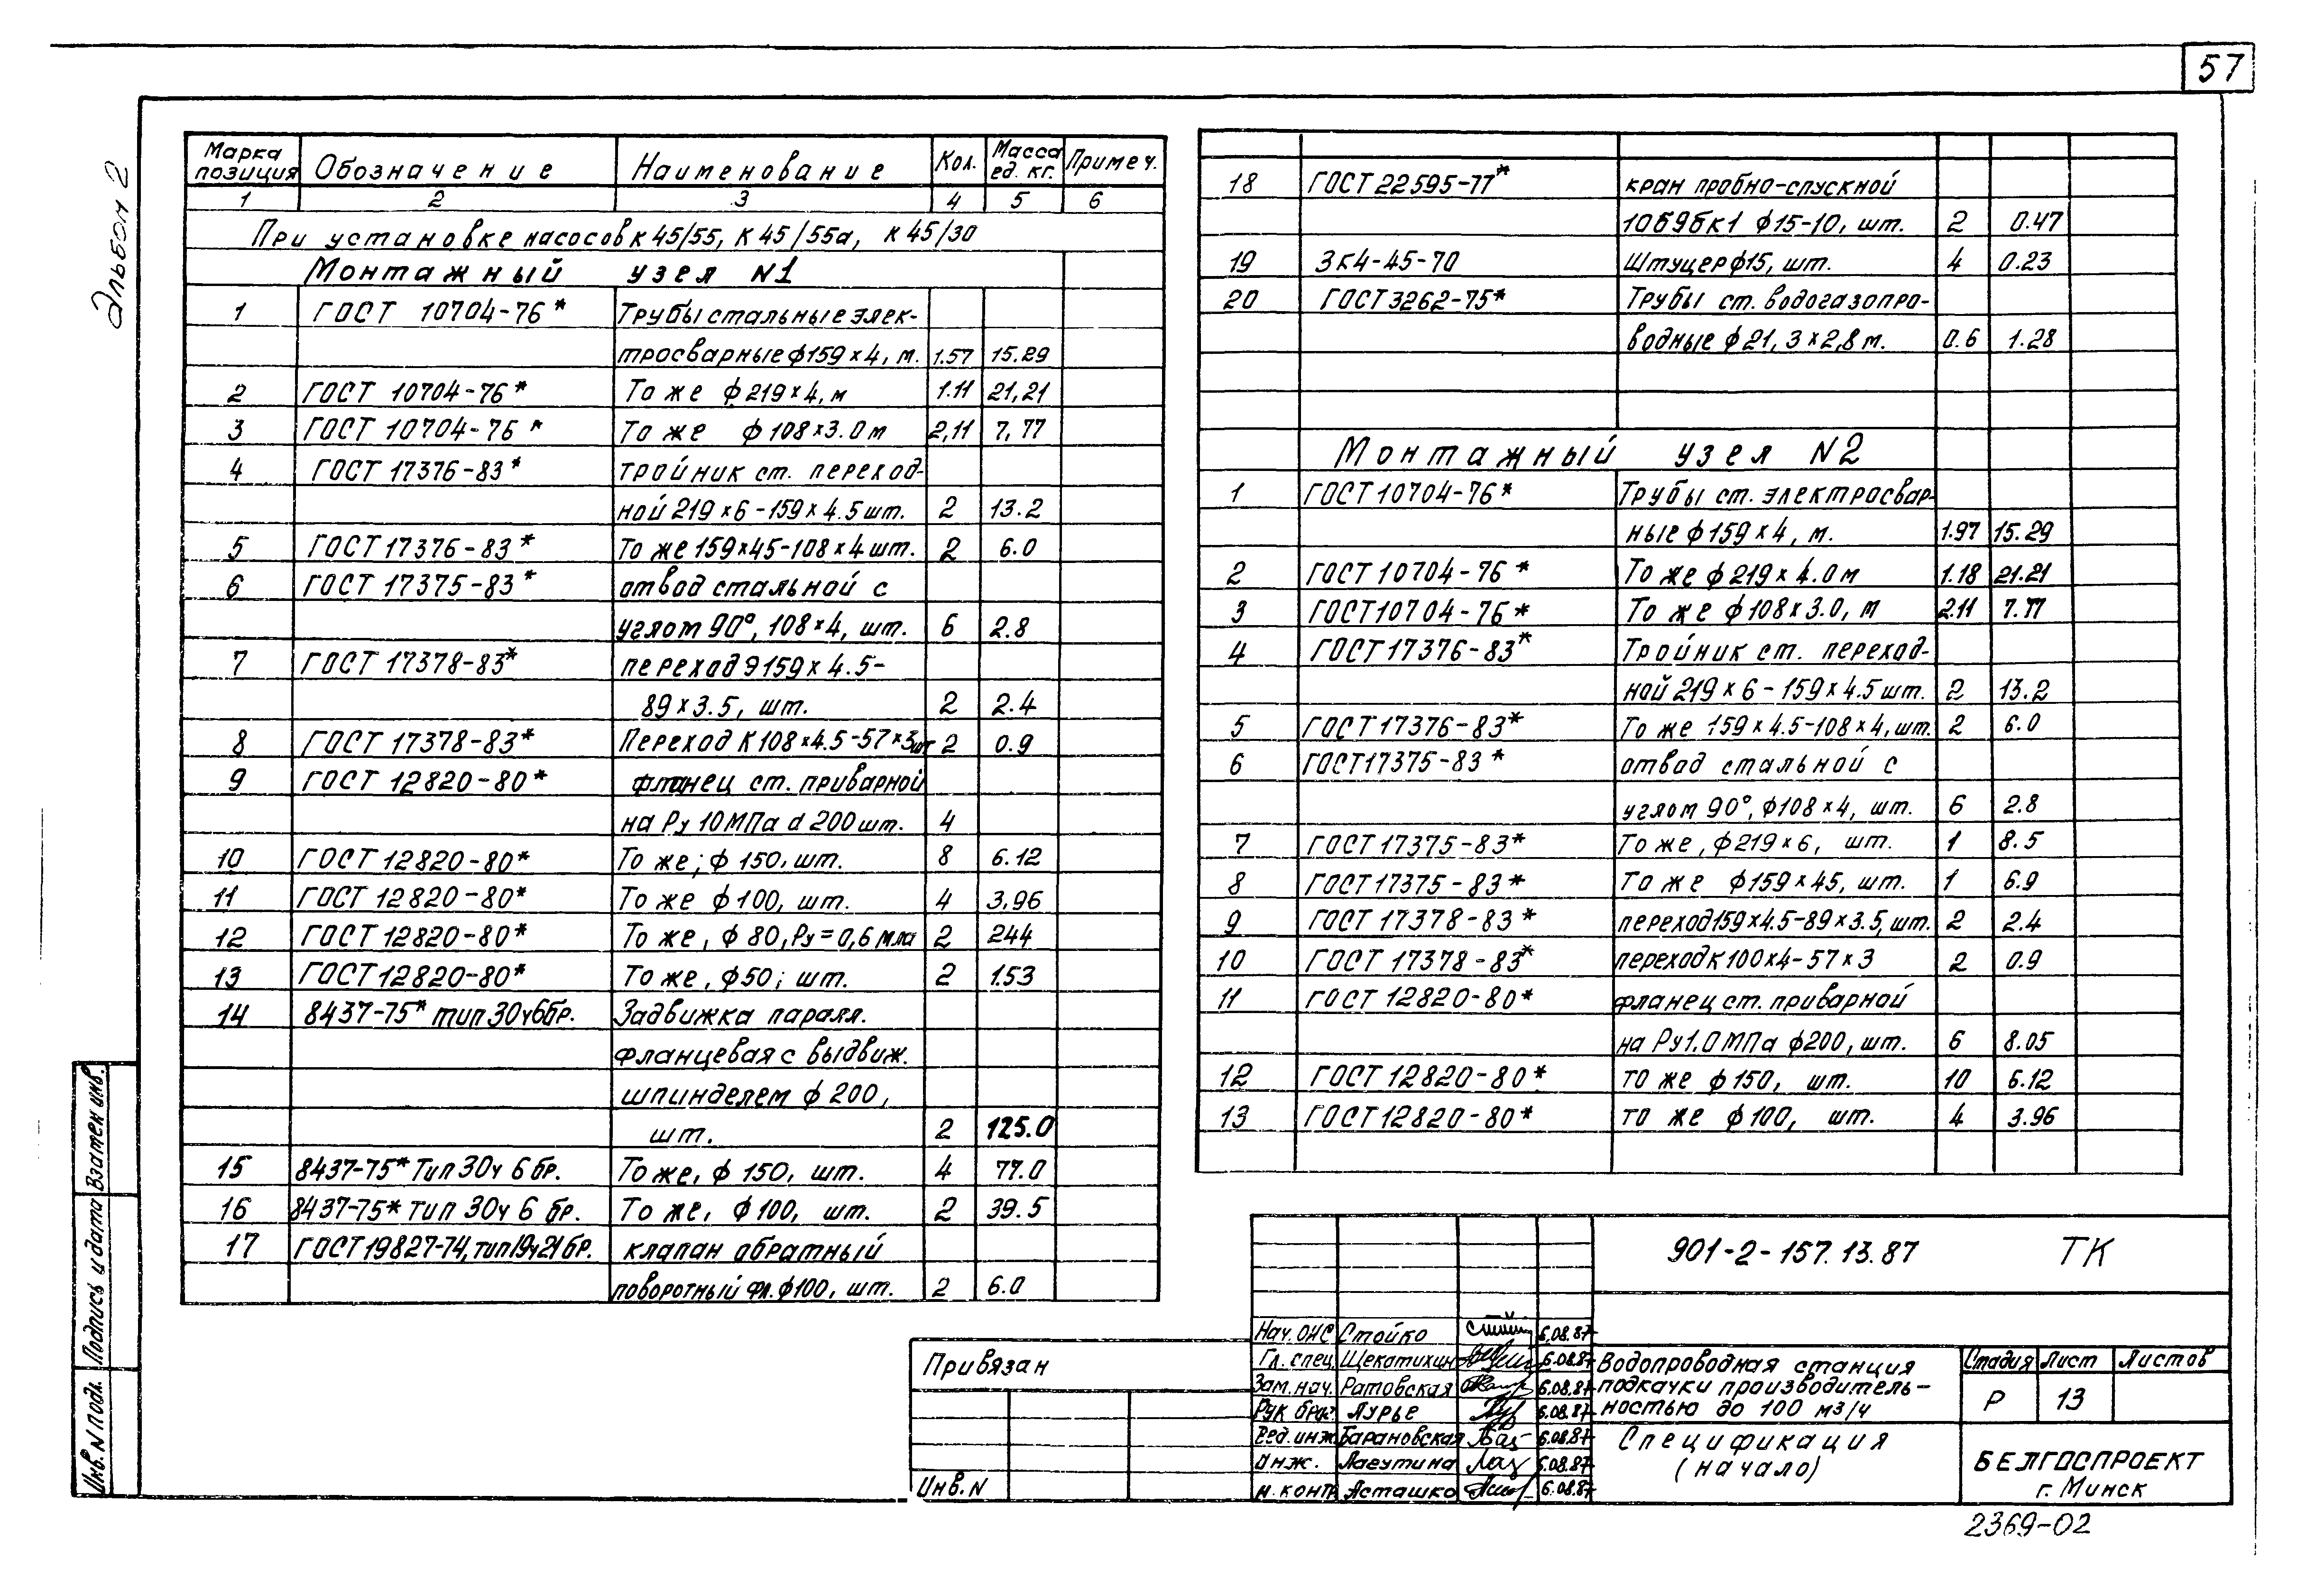 57
Альбом 2
Марка позиция Обозначение Наименование Кол. Масса ед. кг. Примеч.
1 2 3 4 5 6
При установке насосов К 45/55, К 45/55а, К 45/30
Монтажный узел N1
1 ГОСТ 10704-76* Трубы стальные элек-
тросварные ф159×4, м. 1.57 15.29
2 ГОСТ 10704-76* То же ф219×4, м 1.11 21,21
3 ГОСТ 10704-76* То же ф108×3.0 м 2,11 7,77
4 ГОСТ 17376-83* тройник ст. переход-
ной 219×6-159×4.5 шт. 2 13.2
5 ГОСТ 17376-83* То же 159×45-108×4 шт. 2 6.0
6 ГОСТ 17375-83* отвод стальной с
углом 90°, 108×4, шт. 6 2.8
7 ГОСТ 17378-83* переход Э159×4.5-
89×3.5, шт. 2 2.4
8 ГОСТ 17378-83* Переход К108×4.5-57×3 шт 2 0.9
9 ГОСТ 12820-80* фланец ст. приварной
на Ру 10 МПа d 200 шт. 4
10 ГОСТ 12820-80* То же; ф 150, шт. 8 6.12
11 ГОСТ 12820-80* То же ф100, шт. 4 3.96
12 ГОСТ 12820-80* То же, ф 80, Ру=0,6 мпа 2 244
13 ГОСТ 12820-80* То же, ф50; шт. 2 1.53
14 8437-75* тип 30ч6бр. Задвижка паралл.
фланцевая с выдвиж.
шпинделем ф 200,
шт. 2 125.0
15 8437-75* Тип 30ч 6 бр. То же, ф 150, шт. 4 77.0
16 8437-75* Тип 30ч 6 бр. То же, ф100, шт. 2 39.5
17 ГОСТ 19827-74, тип 19ч21бр. клапан обратный
поворотный фл. ф100, шт. 2 6.0
18 ГОСТ 22595-77* кран пробно-спускной
10б9бк1 ф15-10, шт. 2 0.47
19 3к4-45-70 Штуцер ф15, шт. 4 0.23
20 ГОСТ 3262-75* Трубы ст. водогазопро-
водные ф21,3×2,8 м. 0.6 1.28
Монтажный узел N2
1 ГОСТ 10704-76* Трубы ст. электросвар-
ные ф159×4, м. 1.97 15.29
2 ГОСТ 10704-76* То же ф219×4.0 м 1.18 21.21
3 ГОСТ 10704-76* То же ф108×3.0, м 2.11 7.77
4 ГОСТ 17376-83* Тройник ст. переход-
ной 219×6-159×4.5 шт. 2 13.2
5 ГОСТ 17376-83* То же 159×4.5-108×4, шт. 2 6.0
6 ГОСТ 17375-83* отвод стальной с
углом 90°, ф108×4, шт. 6 2.8
7 ГОСТ 17375-83* То же, ф219×6, шт. 1 8.5
8 ГОСТ 17375-83* То же ф159×45, шт. 1 6.9
9 ГОСТ 17378-83* переход 159×4.5-89×3.5, шт. 2 2.4
10 ГОСТ 17378-83* переход К 100×4-57×3 2 0.9
11 ГОСТ 12820-80* фланец ст. приварной
на Ру 1.0 МПа ф200, шт. 6 8.05
12 ГОСТ 12820-80* то же ф150, шт. 10 6.12
13 ГОСТ 12820-80* то же ф100, шт. 4 3.96
Инв. N подл. Подпись и дата Взамен инв.
Привязан
Инв. N
901-2-157.13.87 ТК
Нач. ОНС Стойко 6.08.87
Гл. спец. Щекатихин 6.08.87
Зам. нач. Ратовская 6.08.87
Рук бриг. Лурье 6.08.87
Вед. инж. Барановская 6.08.87
Инж. Лагутина 6.08.87
н. контр Асташко 6.08.87
Водопроводная станция
подкачки производитель-
ностью до 100 м3/ч
Стадия Лист Листов
Р 13
Спецификация
(начало)
БЕЛГОСПРОЕКТ
г. Минск
2369-02